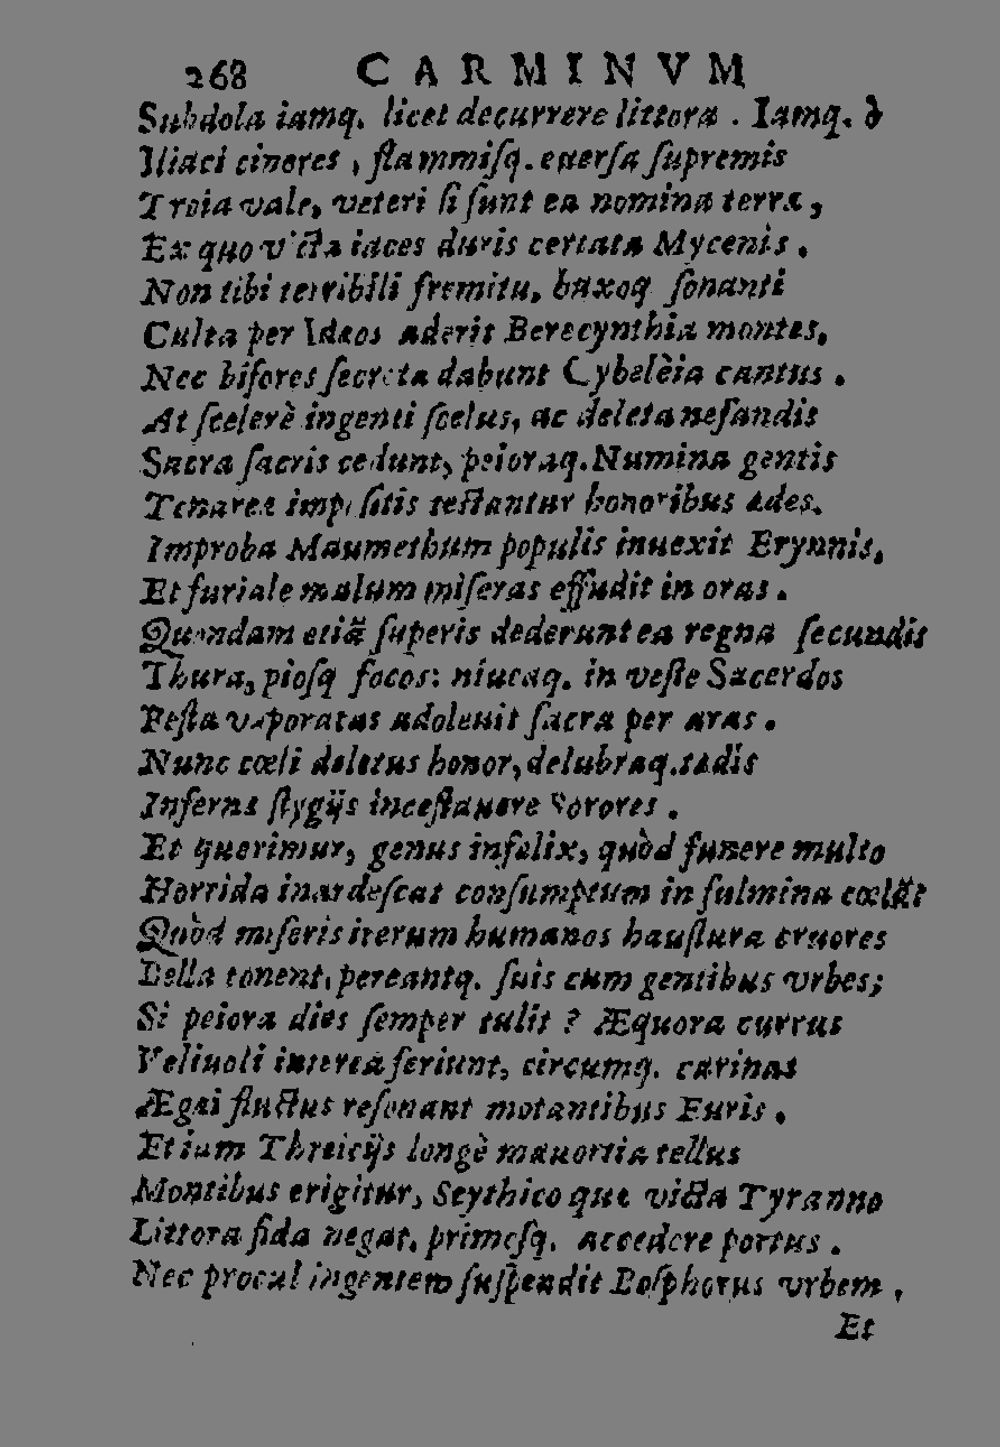 268 CARMINVM
Subdola iamq. licet decurrere littora . Iamq. ò
Iliaci cineres , flammiſq. euerſa ſupremis
Troia vale, veteri ſi ſunt ea nomina terræ ,
Ex quo victa iaces duris certata Mycenis .
Non tibi terribili fremitu, buxoq ſonanti
Culta per Idæos aderit Berecynthia montes,
Nec bifores ſecreta dabunt Cybelèia cantus .
At ſcelerè ingenti ſcelus, ac deleta nefandis
Sacra ſacris cedunt, peioraq. Numina gentis
Tenareæ impoſitis teſtantur honoribus ædes.
Improba Maumethum populis inuexit Erynnis,
Et furiale malum miſeras effudit in oras .
Quondam etiã ſuperis dederunt ea regna ſecundis
Thura, pioſq focos: niueaq. in veſte Sacerdos
Feſta vaporatas adoleuit ſacra per aras .
Nunc cœli deletus honor, delubraq. tædis
Infernæ ſtygijs inceſtauere Sorores .
Et querimur, genus infelix, quòd funere multo
Horrida inardeſcat conſumptum in fulmina cœlũ?
Quòd miſeris iterum humanos hauſtura cruores
Bella tonent, pereantq. ſuis cum gentibus vrbes;
Si peiora dies ſemper tulit ? Æquora currus
Veliuoli interea feriunt, circumq. carinas
Ægæi fluctus reſonant motantibus Euris .
Et iam Threicijs longè mauortia tellus
Montibus erigitur, Scythico quæ victa Tyranno
Littora fida negat, primoſq. accedere portus .
Nec procul ingentem ſuſpendit Boſphorus vrbem ,
Et